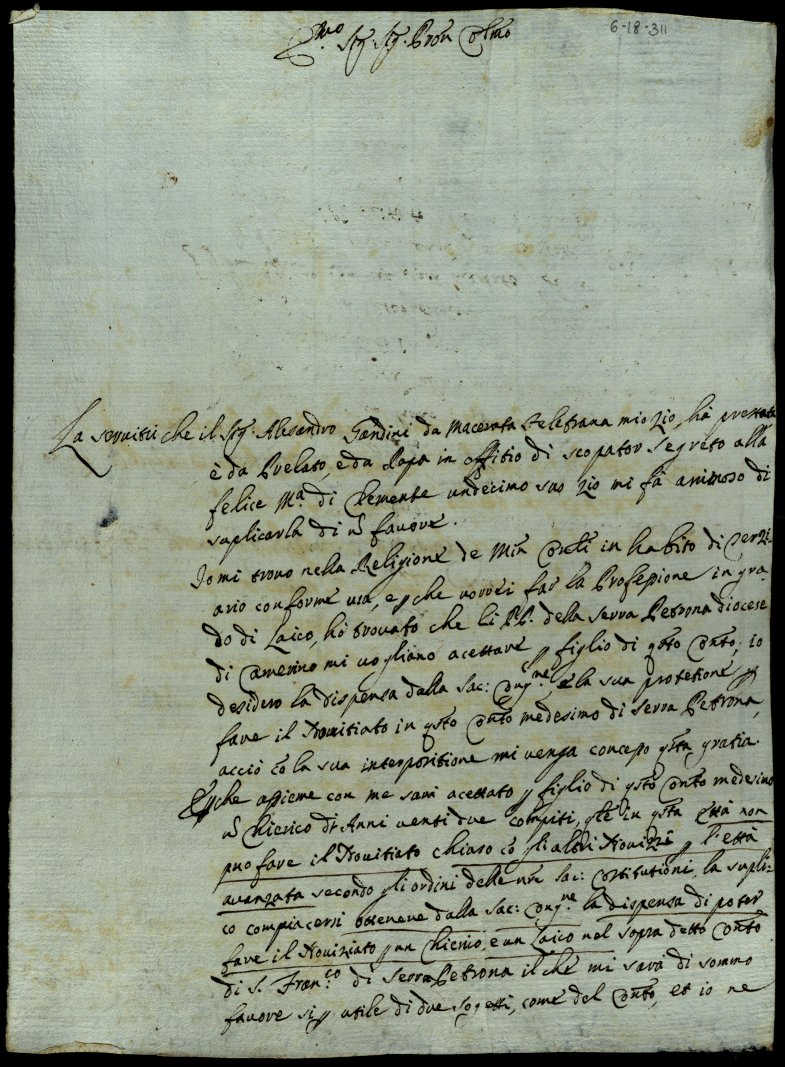 6-18-311
Sig. Sig. Pron Colmo
La servitù che il Sig. Alesandro Gandini da Macerata Feletrana mio zio, hà prestata
è da Prelato, e da Papa in offitio di scopator segreto alla
felice Ma. di Clemente undecimo suo zio mi fà animoso di
suplicarla di ũ favore.
Io mi trovo nella Religione de Min Conli in habito di Terzi-
ario conforme usa, e p che vorrei far la Professione in gra-
do di Laico, hò trovato che li PP. della Serra Petrona diocese
di Camerino mi vogliano acettare p figlio di qsto Conto; io
desidero la dispensa dalla Sac: Congne, e la sua protetione p
fare il Novitiato in qsto Conto medesimo di Serra Petrona,
acciò cõ la sua interpositione mi venga concesso qsta gratia.
E p che assieme con me sarà acettato p figlio di qsto Conto medesimo
ũ Chierico di Anni venti due compiti, qle in qsta Età non
può fare il Novitiato chiaro cõ gli altri Novizzi p l'età
avanzata secondo gli ordini delle nre Sac: Constitutioni, la supli-
co compiacersi ottenere dalla Sac: Congne la dispensa di poter
fare il Noviziato p un Chierico, e un Laico nel sopra detto Conto
di S. Franco di Serra Petrona il che mi sarà di sommo
favore sì p utile di due sogetti, come del Conto, et io ne